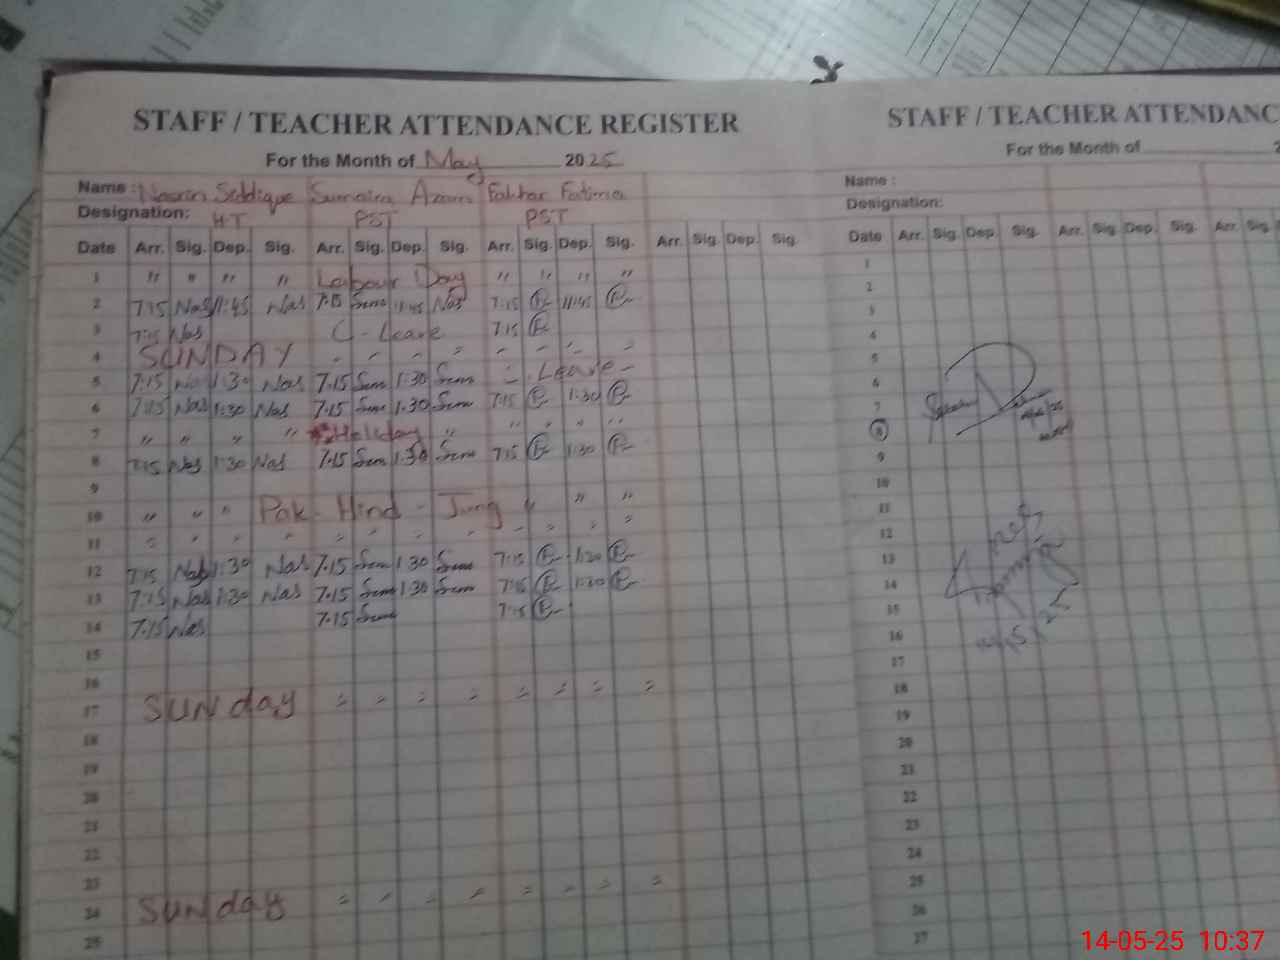 STAFF / TEACHER ATTENDANCE REGISTER
For the Month of May 2025
Name : Nasrin Siddique Sumaira Azam Fakhar Fatima
Designation: HT PST PST
Date Arr. Sig. Dep. Sig. Arr. Sig. Dep. Sig. Arr. Sig. Dep. Sig. Arr. Sig. Dep. Sig.
1 " " " " Labour Day " " " "
2 7:15 Nas 11:45 Nas 7:15 Sum 11:45 Nas 7:15 F 11:45 F
3 7:15 Nas C - Leave 7:15 F
4 SUNDAY " " " " " " " "
5 7:15 Nas 1:30 Nas 7.15 Sum 1:30 Sum - Leave -
6 7:15 Nas 1:30 Nas 7.15 Sum 1.30 Sum 7:15 F 1:30 F
7 " " " " Holiday " " " " "
8 7:15 Nas 1:30 Nas 7.15 Sum 1:30 Sum 7:15 F 1:30 F
9
10 " " " Pak - Hind - Jung " " "
11 " " " " " " " " " " " "
12 7:15 Nas 1:30 Nas 7.15 Sum 1.30 Sum 7:15 F 1:30 F
13 7:15 Nas 1:30 Nas 7.15 Sum 1.30 Sum 7:15 F 1:30 F
14 7:15 Nas 7.15 Sum 7:15 F
15
16
17 Sunday " " " " " " " "
18
19
20
21
22
23
24 Sunday " " " " " " " "
25
STAFF / TEACHER ATTENDANC
For the Month of 2
Name :
Designation:
Date Arr. Sig. Dep. Sig. Arr. Sig. Dep. Sig. Arr. Sig.
1
2
3
4
5
6
7
8
9
10
11
12
13
14
15
16
17
18
19
20
21
22
23
24
25
26
27
14-05-25 10:37